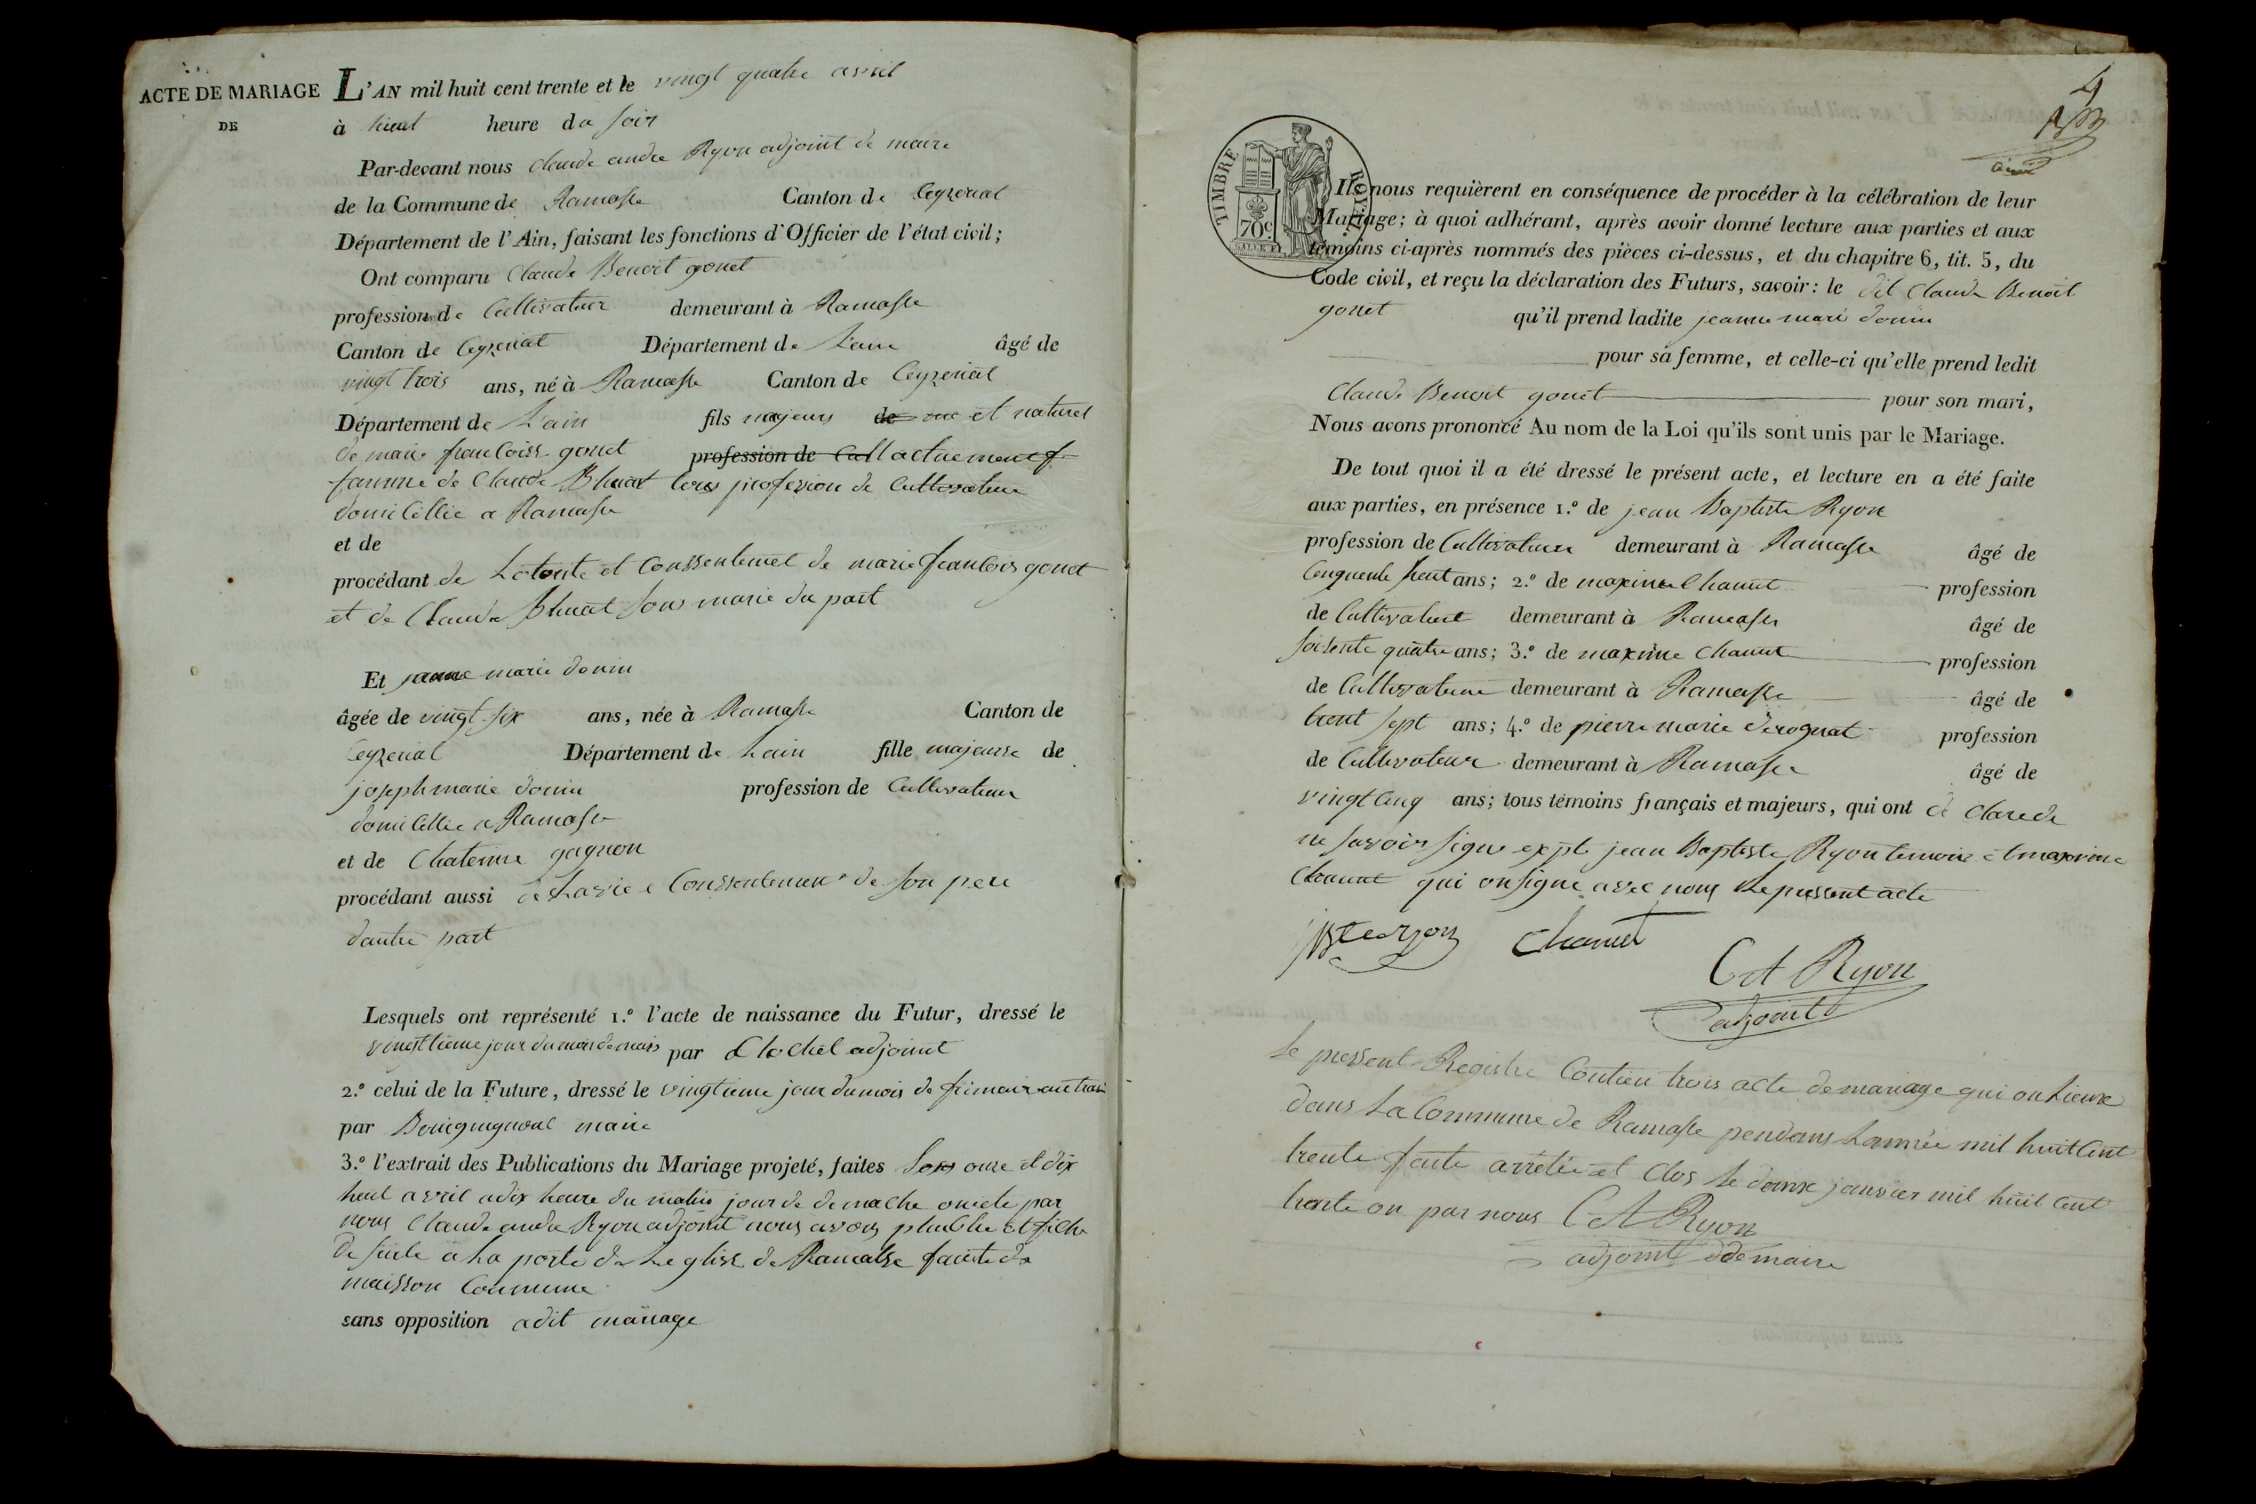 ACTE DE MARIAGE
DE
L'AN mil huit cent trente et le vingt quatre avril
à heure du soir
Par-devant nous Claude andre Ryon adjoint de maire
de la Commune de Ramasse Canton de Ceyzeriat
Département de l'Ain, faisant les fonctions d'Officier de l'état civil;
Ont comparu Claude Benoit gonet
profession de Cultivateur demeurant à Ramasse
Canton de Ceyzeriat Département de Lain âgé de
vingt trois ans, né à Ramasse Canton de Ceyzeriat
Département de Lain fils majeur de et naturel
de marie francoise gonet profession de Cul lactuement
famme de Claude Bluat tous profession de Cultivateur
domicillie a Ramasse
et de
procédant de Lotorite et Conssentemet de marie francois gonet
et de Claude Bluat sous marie du part
Et jeanne marie donin
âgée de vingt six ans, née à Ramasse Canton de
Ceyzeriat Département de Lain fille majeurse de
joseph marie donin profession de Cultivateur
domicillie a Ramasse
et de Chaterine gagnon
procédant aussi de Lavie e Conssentemen de son pere
dautre part
Lesquels ont représenté 1.º l'acte de naissance du Futur, dressé le
vingttieme jour du mois de mars par Clochet adjoint
2.º celui de la Future, dressé le vingtieme jour dumois de frimaire an trois
par Bourguignont maire
3.º l'extrait des Publications du Mariage projeté, faites Les onze et dix
heut avril adix heure du matin jour de demache par
nous Claude andre Ryon adjoint nous avons plublie et fiche
de suite a La porte de Leglise de Ramasse facute da
maisson Commune
sans opposition adit mariage
4
TIMBRE ROYAL
70c
Ils nous requièrent en conséquence de procéder à la célébration de leur
Mariage; à quoi adhérant, après avoir donné lecture aux parties et aux
témoins ci-après nommés des pièces ci-dessus, et du chapitre 6, tit. 5, du
Code civil, et reçu la déclaration des Futurs, savoir: le dit Claude Benoit
gonet qu'il prend ladite jeanne marie donin
pour sa femme, et celle-ci qu'elle prend ledit
Claude Benoit gonet pour son mari,
Nous avons prononcé Au nom de la Loi qu'ils sont unis par le Mariage.
De tout quoi il a été dressé le présent acte, et lecture en a été faite
aux parties, en présence 1.º de jean Baptiste Ryon
profession de Cultivateur demeurant à Ramasse âgé de
Cenquente heut ans; 2.º de maxime Chanut profession
de Cultivateur demeurant à Ramasse âgé de
soisente quatre ans; 3.º de maxime Chanut profession
de Cultivateur demeurant à Ramasse âgé de
trent sept ans; 4.º de pierre marie derognat profession
de Cultivateur demeurant à Ramasse âgé de
vingt cinq ans; tous témoins français et majeurs, qui ont de Clare de
ne savoir signe exspte jean Baptiste Ryon temoin et maxime
Chanut qui onsigne avec nous Le pressent acte
jBte ryon Chanut
C A Ryon
adjoint
Le pressent Registre Contien trois acte de mariage qui on Lieux
dans La Commune de Ramasse pendans Lannée mil huit Cent
trente faite arrêtée et Clos Le deux janvier mil huit Cent
trente on par nous C A Ryon
adjoint de maire